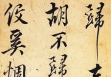 歸
胡不歸
役奚惆